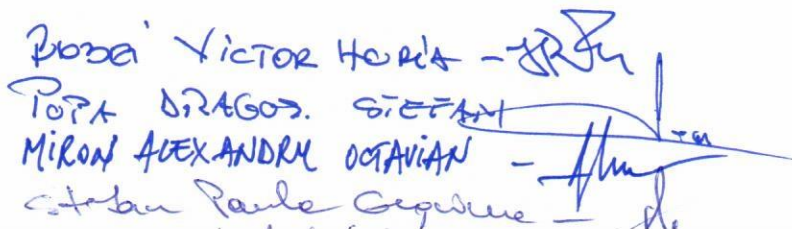 VICTOR HORIA -
POPA DRAGOȘ. STEFAN
MIRON ALEXANDRU OCTAVIAN -
Stefan Paula Georgiana -